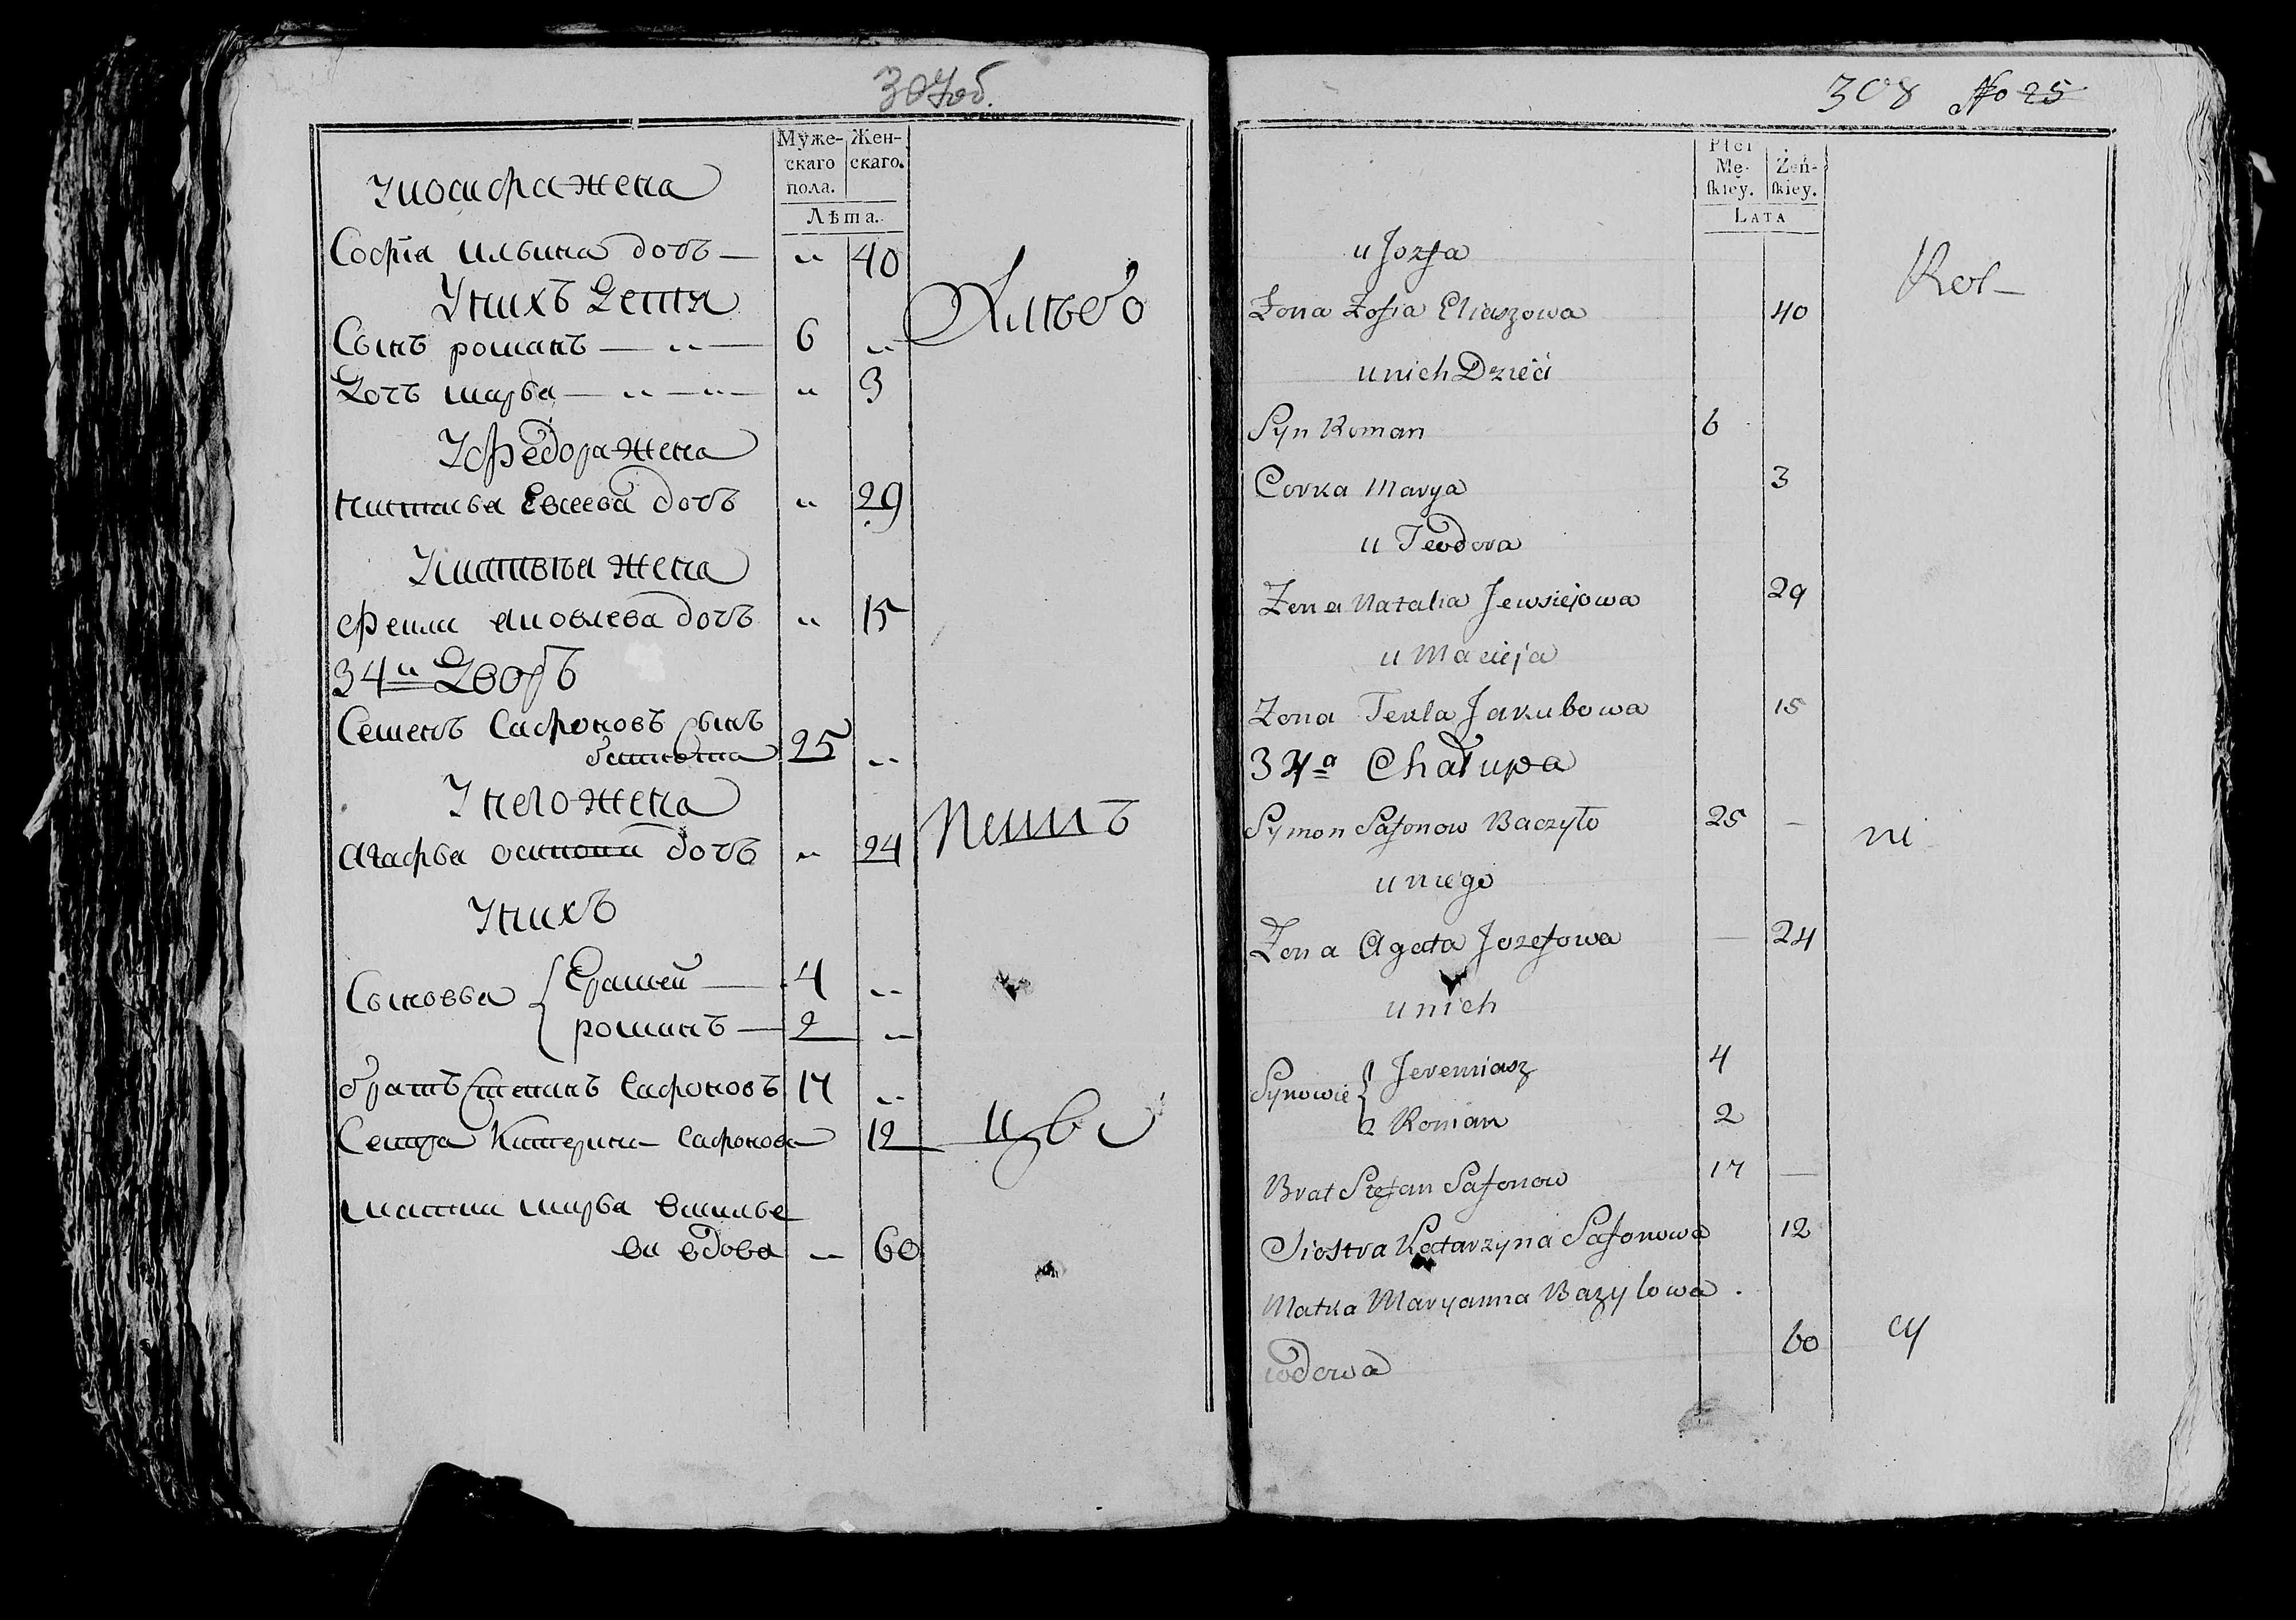 307об.
Муже- Жен-
скаго скаго.
пола.
Лѣта.
У иосифа жена
Софія ильина дочь — " 40
У нихъ Дети
Сынъ романъ — " — 6 "
Дочъ марья — " — " — " 3
У федора жена
наталья Евсеева дочь " 29
У матвѣя жена
фекли яковлева дочь " 15
34й Дворъ
Семенъ Сафоновъ Сынъ
25 "
У него жена
агафья осипова дочь " 24
У нихъ
Сыновья { Ермей — 4 "
романъ — 2 "
братъ Степанъ Сафоновъ 17 "
Сестра Катерина Сафонова 12
мати марья василье
ва вдова " 60
308 No 25
Płci
Mę- Żeń-
skiey. skiey.
LATA
u Jozfa
Żona Zofia Eliaszowa 40
u nich Dzieci
Syn Roman 6
Corka Marya 3
u Teodora
Żona Natalia Jewsiejowa 29
u Macieja
Zona Tekla Jakubowa 15
34a Chałupa
Symon Safonow Baczyło 25 —
u niego
Żona Agata Jozefowa — 24
u nich
Synowie { Jeremiasz 4
Roman 2
Brat Stefan Safonow 17 —
Siostra Katarzyna Safonowa 12
Matka Maryanna Bazylowa .
60
wdowa